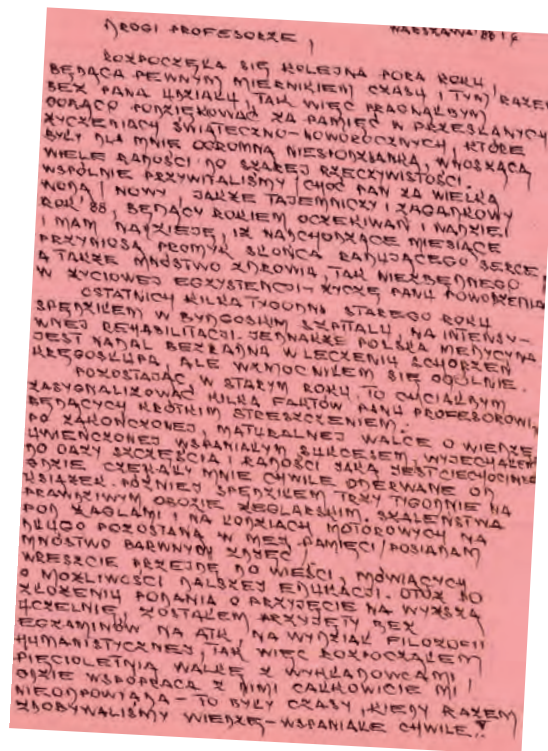 DROGI PROFESORZE, WARSZAWA 88 I
ROZPOCZĘŁA SIĘ KOLEJNA PORA ROKU,
BĘDĄCA PEWNYM MIERNIKIEM CZASU I TYM RAZEM
BEZ PANA UDZIAŁU, TAK WIĘC PRAGNĄŁBYM
GORĄCO PODZIĘKOWAĆ ZA PAMIĘĆ W PRZESŁANYCH
ŻYCZENIACH ŚWIĄTECZNO-NOWOROCZNYCH, KTÓRE
BYŁY DLA MNIE OGROMNĄ NIESPODZIANKĄ, WNOSZĄCĄ
WIELE RADOŚCI DO SZAREJ RZECZYWISTOŚCI.
WSPÓLNIE PRZYWITALIŚMY (CHOĆ PAN ZA WIELKĄ
WODĄ) NOWY, JAKŻE TAJEMNICZY I ZAGADKOWY
ROK '88, BĘDĄCY ROKIEM OCZEKIWAŃ I NADZIEI
I MAM NADZIEJĘ, IŻ NADCHODZĄCE MIESIĄCE
PRZYNIOSĄ PROMYK SŁOŃCA RADUJĄCEGO SERCE,
A TAKŻE MNÓSTWO ZDROWIA, TAK NIEZBĘDNEGO
W ŻYCIOWEJ EGZYSTENCJI - ŻYCZĘ PANU POWODZENIA
OSTATNICH KILKA TYGODNI STAREGO ROKU
SPĘDZIŁEM W BYDGOSKIM SZPITALU, NA INTENSY-
WNEJ REHABILITACJI. JEDNAKŻE POLSKA MEDYCYNA
JEST NADAL BEZRADNA W LECZENIU SCHORZEŃ
KRĘGOSŁUPA, ALE WZMOCNIŁEM SIĘ OGÓLNIE.
POZOSTAJĄC, W STARYM ROKU, TO CHCIAŁBYM
ZASYGNALIZOWAĆ KILKA FAKTÓW PANU PROFESOROWI,
BĘDĄCYCH KRÓTKIM STRESZCZENIEM.
PO ZAKOŃCZONEJ MATURALNEJ WALCE O WIEDZĘ,
UWIEŃCZONEJ WSPANIAŁYM SUKCESEM, WYJECHAŁEM
DO OAZY SZCZĘŚCIA I RADOŚCI JAKĄ JEST CIECHOCINEK
GDZIE CZEKAŁY MNIE CHWILE ODERWANE OD
KSIĄŻEK. PÓŹNIEJ SPĘDZIŁEM TRZY TYGODNIE NA
PRAWDZIWYM OBOZIE ŻEGLARSKIM. SZALEŃSTWA
POD ŻAGLAMI I NA ŁODZIACH MOTOROWYCH NA
DŁUGO POZOSTANĄ W MEJ PAMIĘCI (POSIADAM
MNÓSTWO BARWNYCH ZDJĘĆ)
WRESZCIE PRZEJDĘ DO WIEŚCI, MÓWIĄCYCH
O MOŻLIWOŚCI DALSZEJ EDUKACJI. OTÓŻ PO
ZŁOŻENIU PODANIA O PRZYJĘCIE NA WYŻSZĄ
UCZELNIĘ, ZOSTAŁEM PRZYJĘTY BEZ
EGZAMINÓW NA ATK, NA WYDZIAŁ FILOZOFII
HUMANISTYCZNEJ, TAK WIĘC ROZPOCZĄŁEM
PIĘCIOLETNIĄ WALKĘ Z WYKŁADOWCAMI,
GDZIE WSPÓŁPRACA Z NIMI CAŁKOWICIE MI
NIEODPOWIADA - TO BYŁY CZASY, KIEDY RAZEM
ZDOBYWALIŚMY WIEDZĘ - WSPANIAŁE CHWILE!